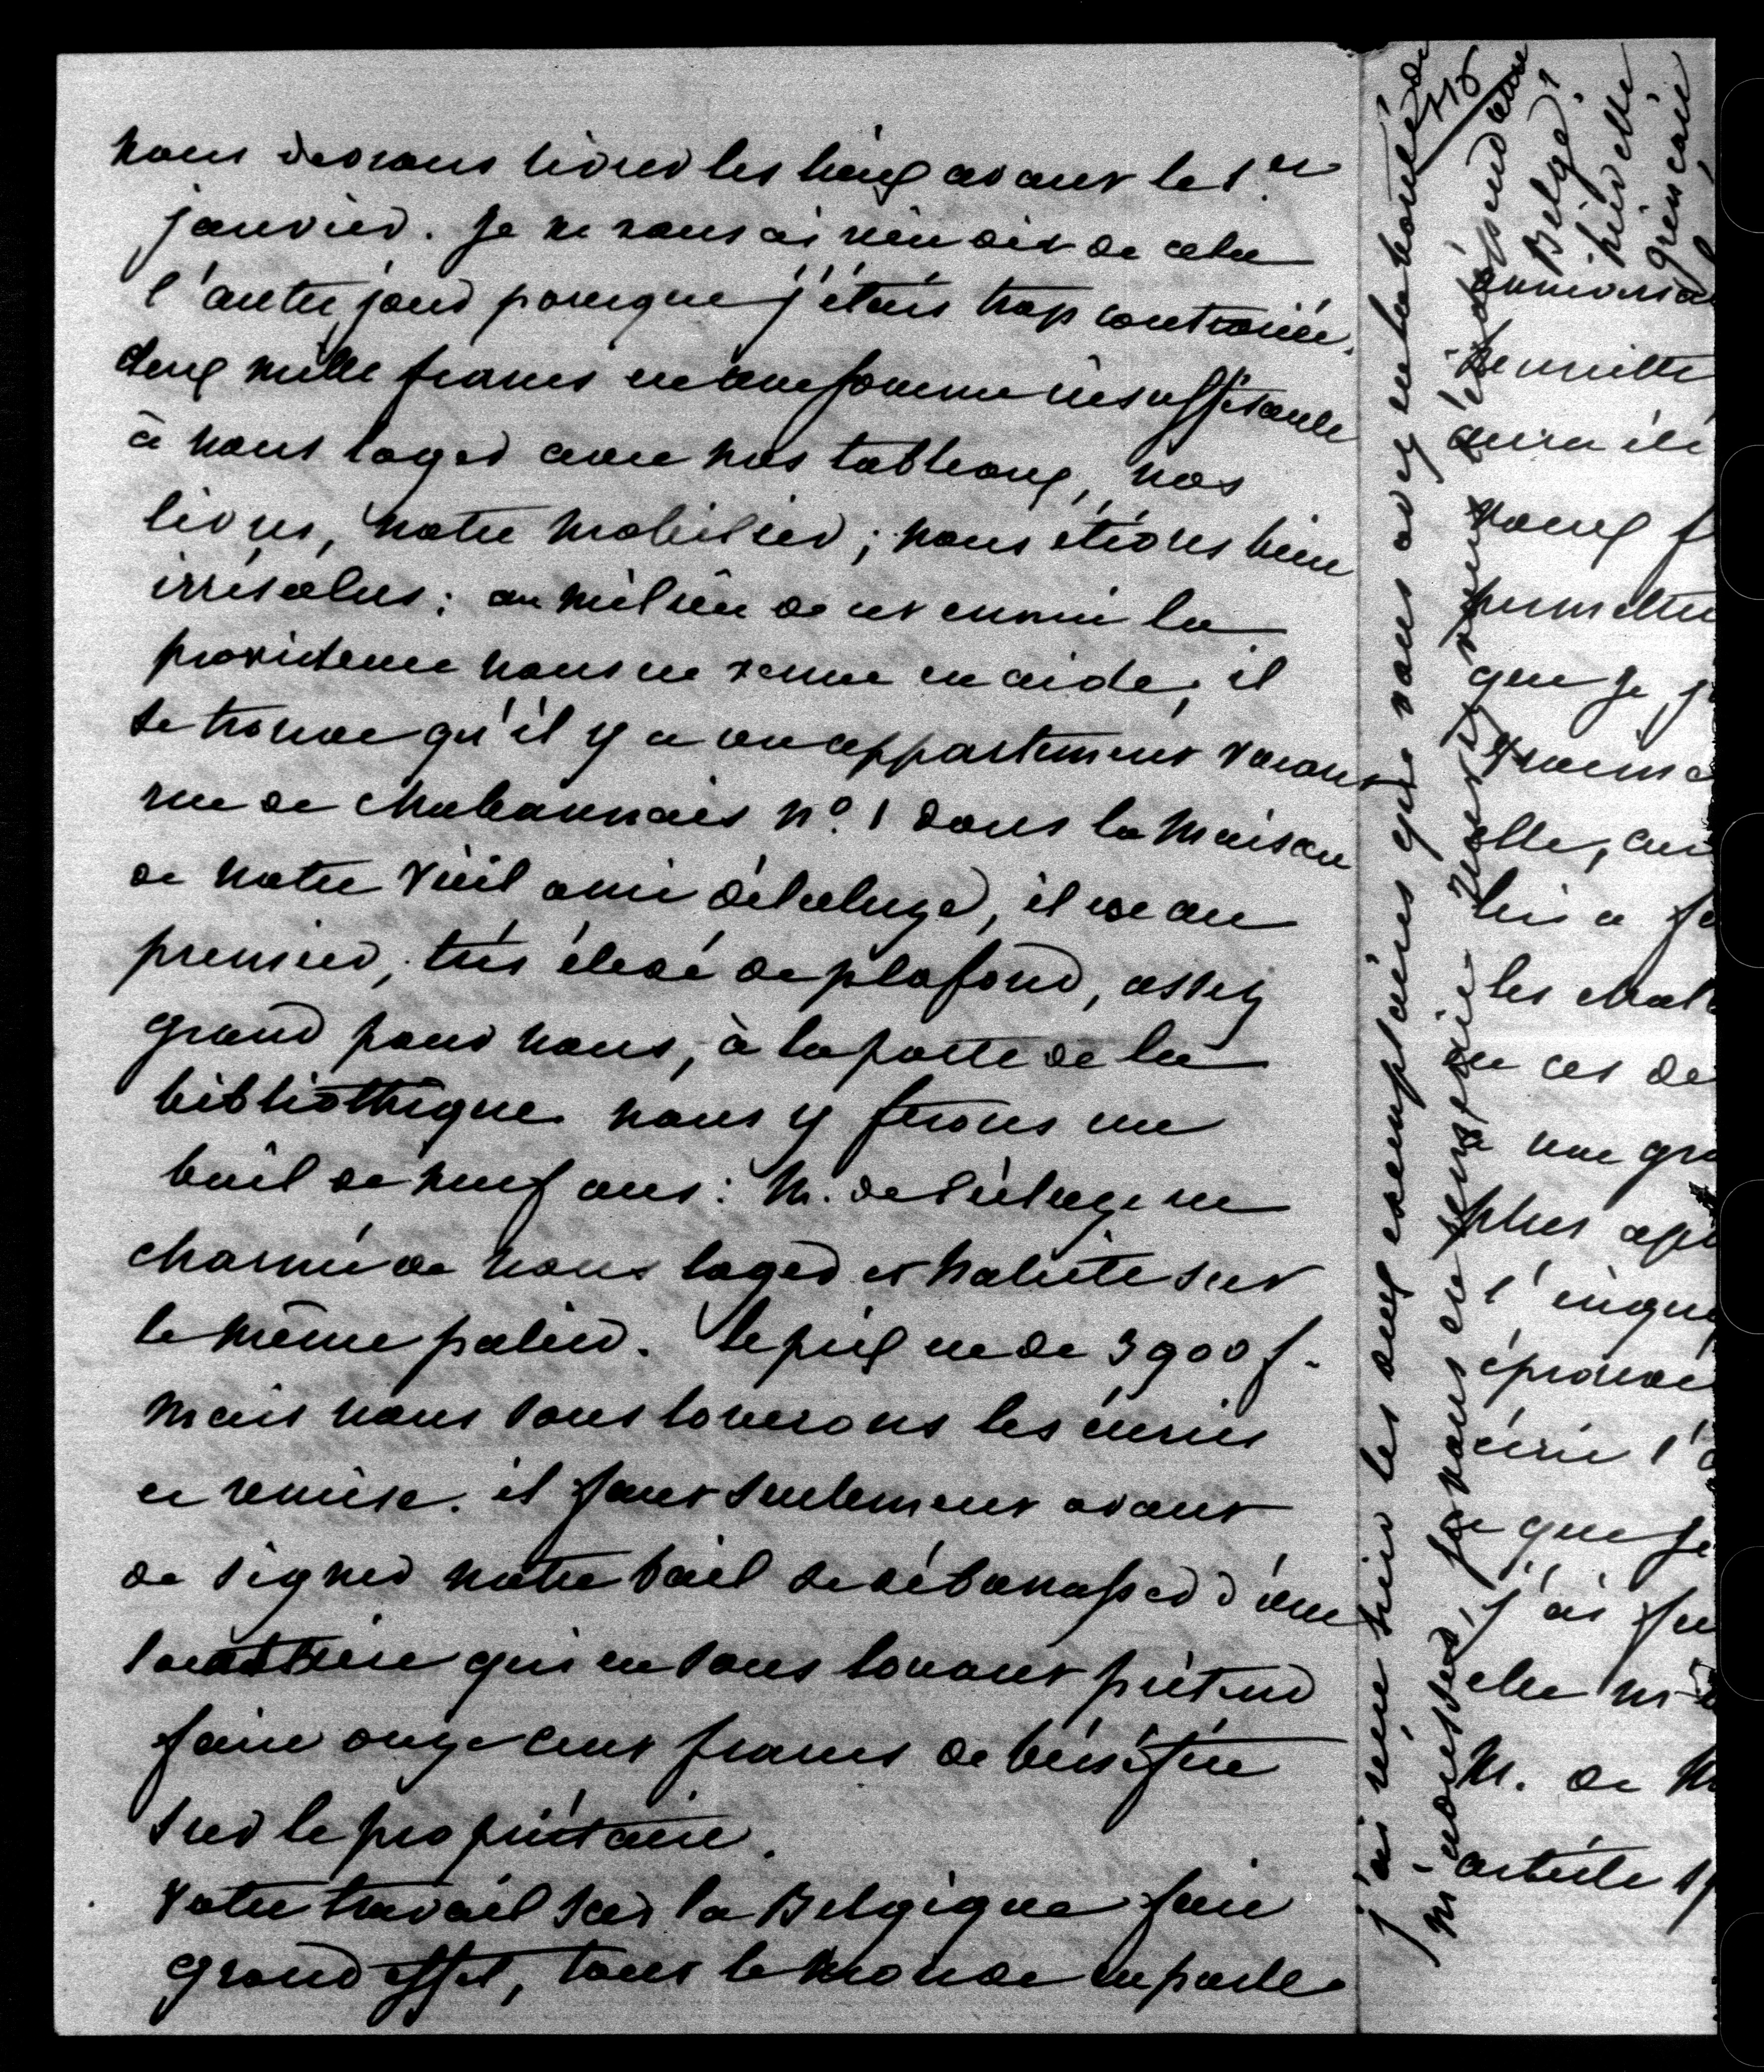 nous devrons livrer les lieux avant le 1.er
janvier. je ne vous ai rien dit de cela
l'autre jour parceque j'étais trop contrariée.
deux mille francs est une somme insuffisante
à nous loger avec nos tableaux, nos
livres, notre mobilier; nous étions bien
irrésolus: au milieu de cet ennui la
providence nous est venue en aide, il
se trouve qu'il y a un appartement vacant
rue de Chabannais n.o 1 dans la maison
de notre vieil ami délécluze, il est au
premier, très élevé de plafond, assez
grand pour nous, à la porte de la
bibliothèque. nous y ferons un
bail de neuf ans: M. delécluze est
charmé de nous loger et habite sur
le même palier. le prix est de 3900 f.
mais nous sous louerons les écuries
et remise. il faut seulement avant
de signer notre bail se débarrasser d'une
locataire qui en sous louant prétend
faire onze cent francs de bénéfice
sur le propriétaire.
Votre travail sur la Belgique fait
grand effet, tout le monde en parle
j'ai reçu hier les deux exemplaires que vous avez eu la bonté de
m'adresser, je vous en remercie
115
Belge!
permettre
que je
elle,
lui a
les
en ces de
a une
plus
l'
éprouvé
écrit l'
ce que je
j'ai
elle
M. de
article